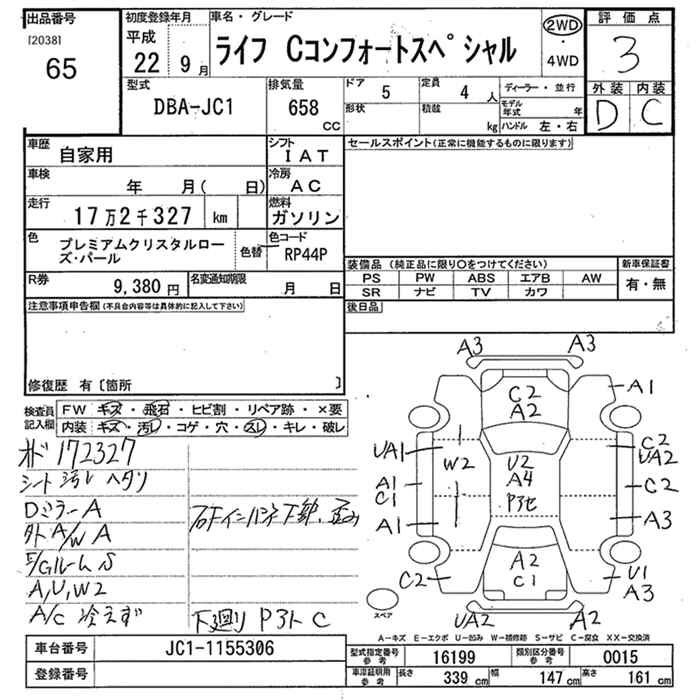 出品番号
[2038]
65
初度登録年月
平成
22 9月
車名・グレード
ライフ Cコンフォートスペシャル
2WD
・
4WD
評価点
3
外装 内装
D C
型式
DBA-JC1
排気量
658
cc
ドア
5
定員
4 人
形状
積載
kg
ディーラー・並行
モデル年式 年
ハンドル 左・右
車歴
自家用
シフト
IAT
車検
年 月( 日)
冷房
AC
走行
17万2千327 km
燃料
ガソリン
色
プレミアムクリスタルロー
ズ・パール
色替
色コード
RP44P
R券
9,380円
名変通知期限
月 日
セールスポイント(正常に機能するものに限ります)
装備品 (純正品に限り○をつけてください)
PS PW ABS エアB AW
SR ナビ TV カワ
新車保証書
有・無
後日品
注意事項申告欄(不具合内容等は具体的に記入して下さい)
修復歴 有〔箇所 〕
検査員
記入欄
FW キズ・飛石・ヒビ割・リペア跡・×要
内装 キズ・汚レ・コゲ・穴・スレ・キレ・破レ
172327
シート汚レ ヘタリ
Dミラー A
外A/W A
E/Gルーム S
A,U,W2
A/C 冷えず
下廻り P3ト C
A3 A3
C2
A2
A1
UA1
W2
U2
A4
P3セ
C2
UA2
A1
C1
C2
A1
A3
A2
C1
C2
U1
A3
UA2 A2
スペア
A-キズ E-エクボ U-凹み W-補修跡 S-サビ C-腐食 XX-交換済
車台番号
JC1-1155306
登録番号
型式指定番号
参考
16199
類別区分番号
参考
0015
車庫証明用
参考
長さ
339 cm
幅
147 cm
高さ
161 cm